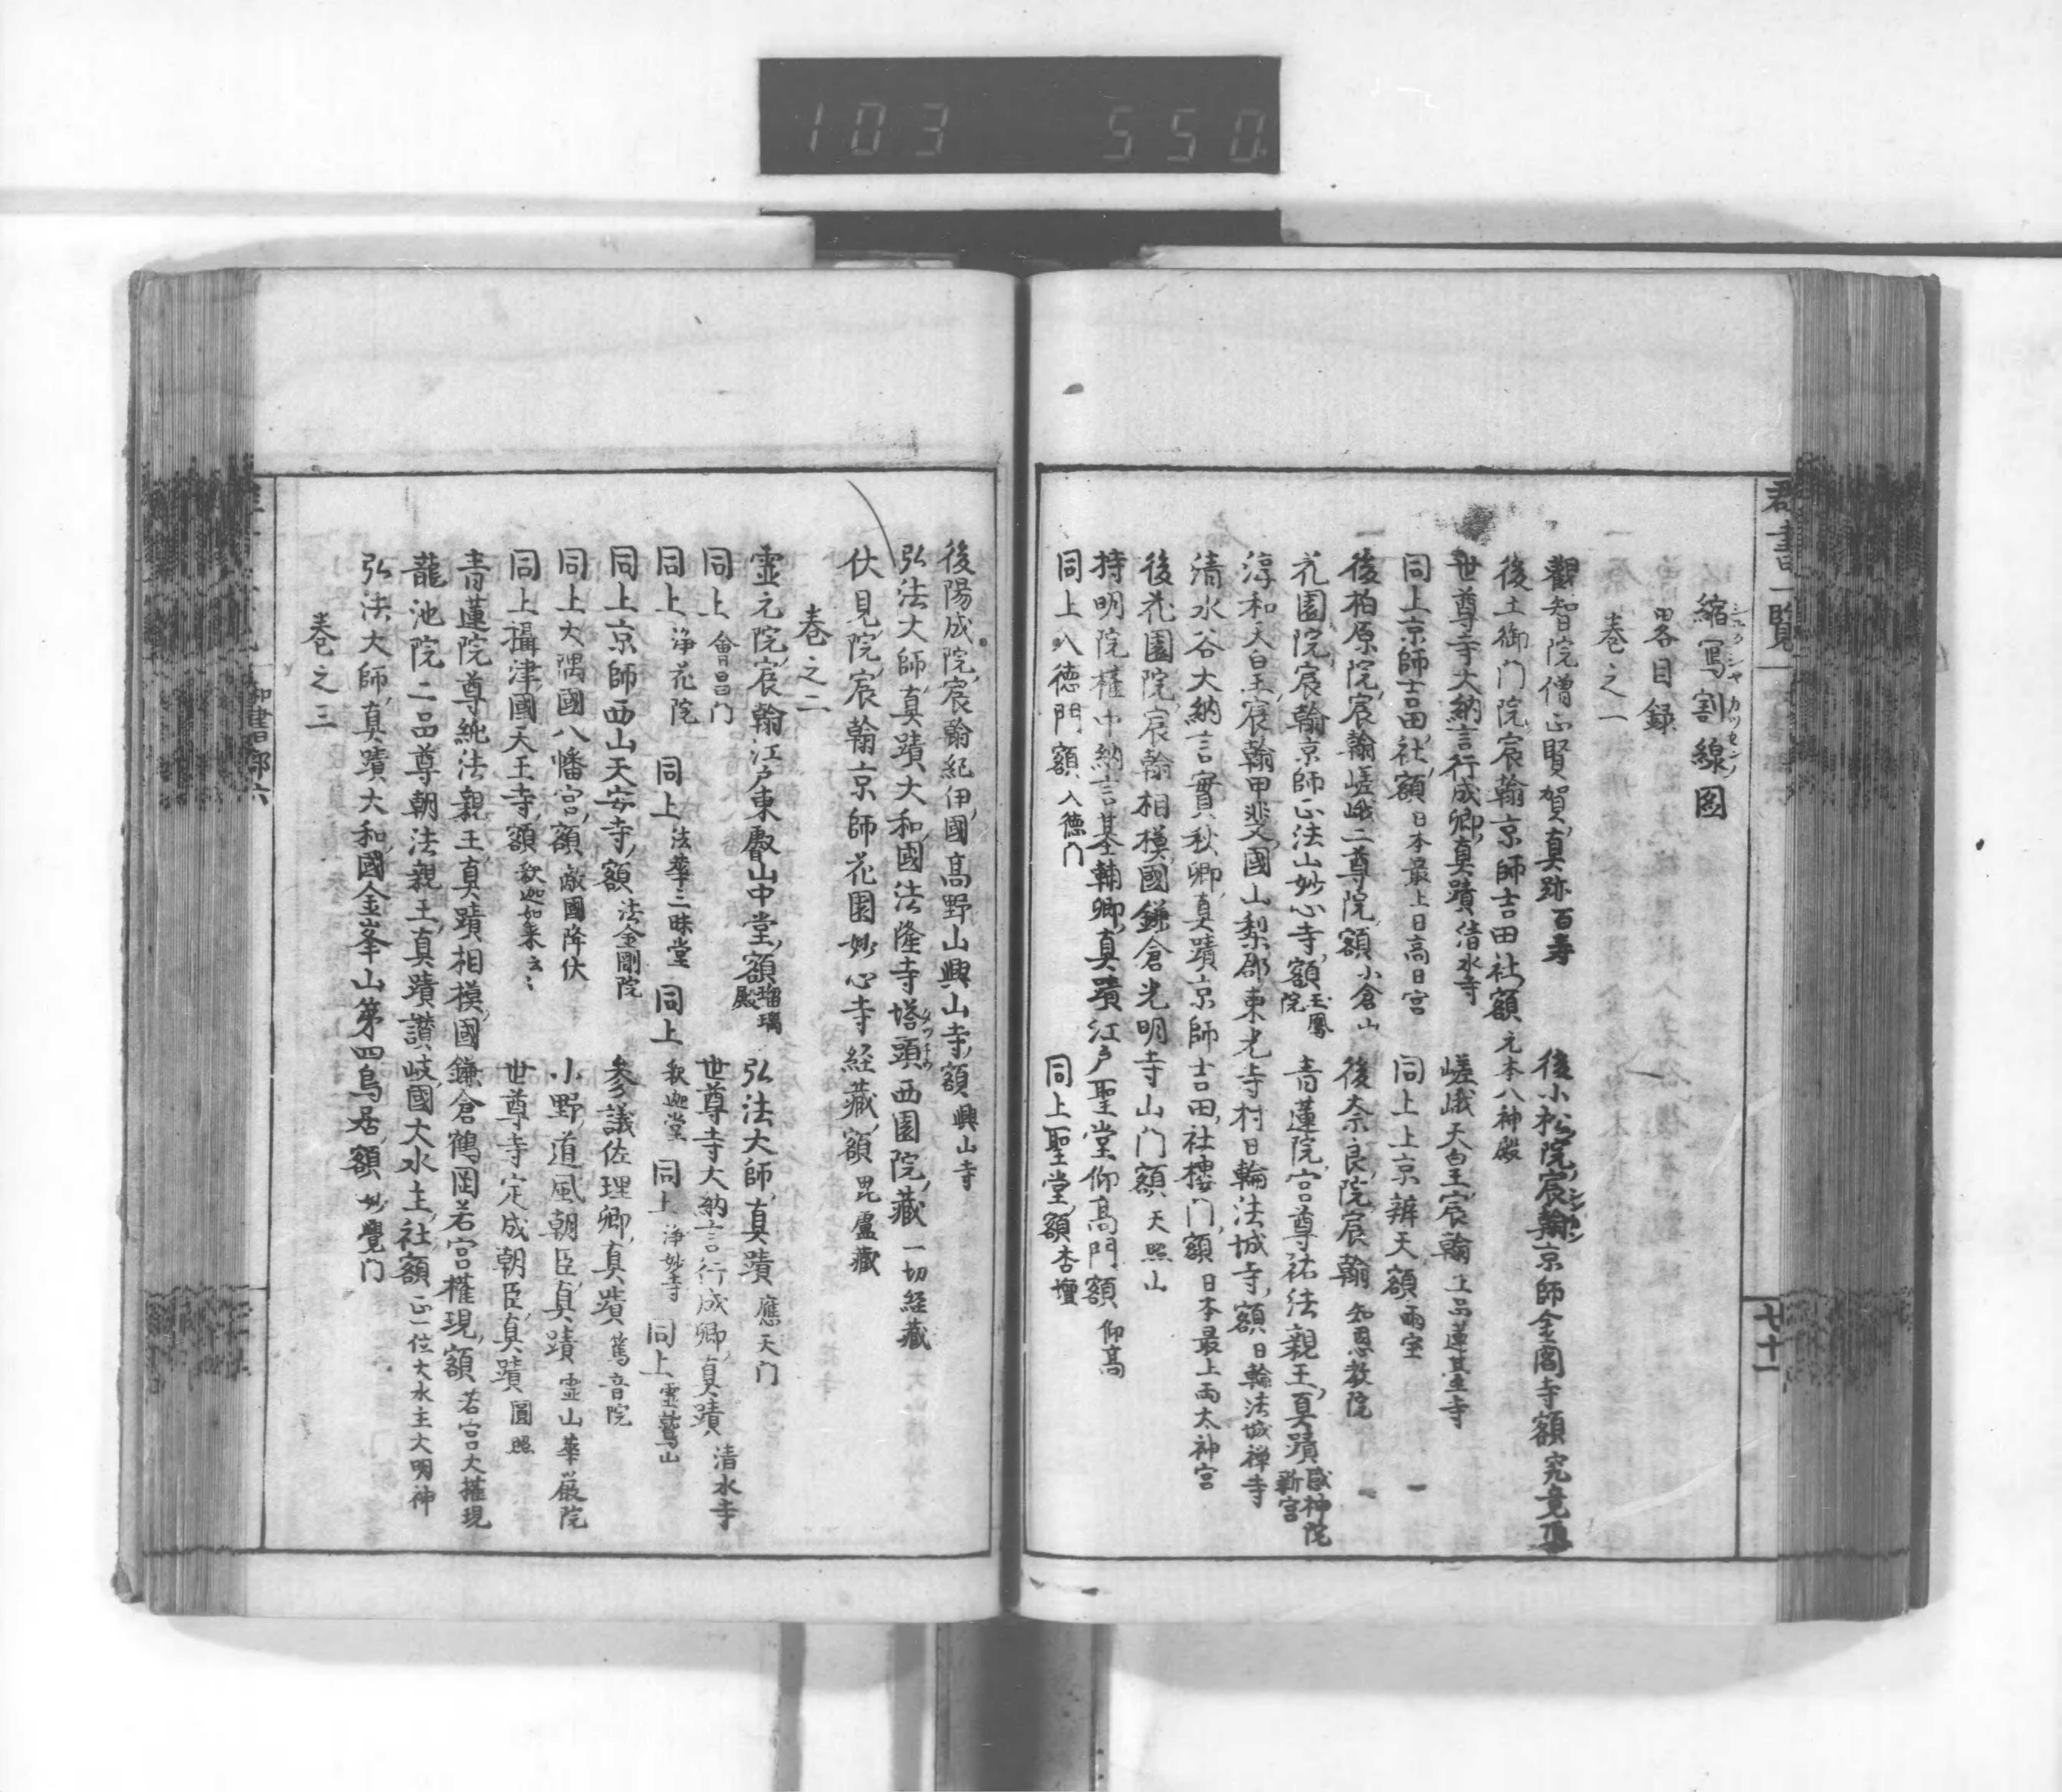 103 550
群書一覧
縮寫割線圖
シユクシヤカツセンノ
畧目録
巻之一
觀智院僧正賢賀真跡 百壽 後小松院宸翰京師金閣寺額 究竟頂
後土御门院宸翰京師吉田社額 元本八神殿
世尊寺大納言行成卿真蹟 清水寺 嵯峨天皇宸翰 上品蓮臺寺
同上京師吉田社額 日本最上日高日宮 同上上京辨天額 雨宝
後柏原院宸翰嵯峨二尊院額 小倉山 後奈良院宸翰 知恩教院
花園院宸翰京師正法山妙心寺額 玉鳳院 青蓮院宮尊祐法親王真蹟 感神院新宮
淳和天皇宸翰甲斐國山梨郡東光寺村日輪法城寺額 日輪法城禅寺
清水谷大納言實秋卿真蹟京師吉田社樓门額 日本最上両太神宮
後花園院宸翰相模國鎌倉光明寺山门額 天照山
持明院権中納言基輔卿真蹟江戸聖堂仰高門額 仰高
同上入徳門額 入徳门 同上聖堂額 杏壇
七十一
後陽成院宸翰紀伊國高野山興山寺額 興山寺
弘法大師真蹟大和國法隆寺塔頭西園院藏 一切経藏
伏見院宸翰京師花園妙心寺経藏額 毘盧藏
巻之二
霊元院宸翰江戸東叡山中堂額 瑠璃殿 弘法大師真蹟 應天门
同上 會昌门 世尊寺大納言行成卿真蹟 清水寺
同上 浄花院 同上 法華三昧堂 同上 釈迦堂 同上 浄妙寺 同上 霊鷲山
同上京師西山天安寺額 法金剛院 参議佐理卿真蹟 篤音院
同上大隅國八幡宮額 敵國降伏 小野道風朝臣真蹟 霊山華厳院
同上攝津國天王寺額 釈迦如来云〻 世尊寺定成朝臣真蹟 圓照
青蓮院尊純法親王真蹟相模國鎌倉鶴岡若宮権現額 若宮大権現
龍池院二品尊朝法親王真蹟讃岐國大水主社額 正一位大水主大明神
弘法大師真蹟大和國金峯山第四鳥居額 妙覺门
巻之三
和書部六